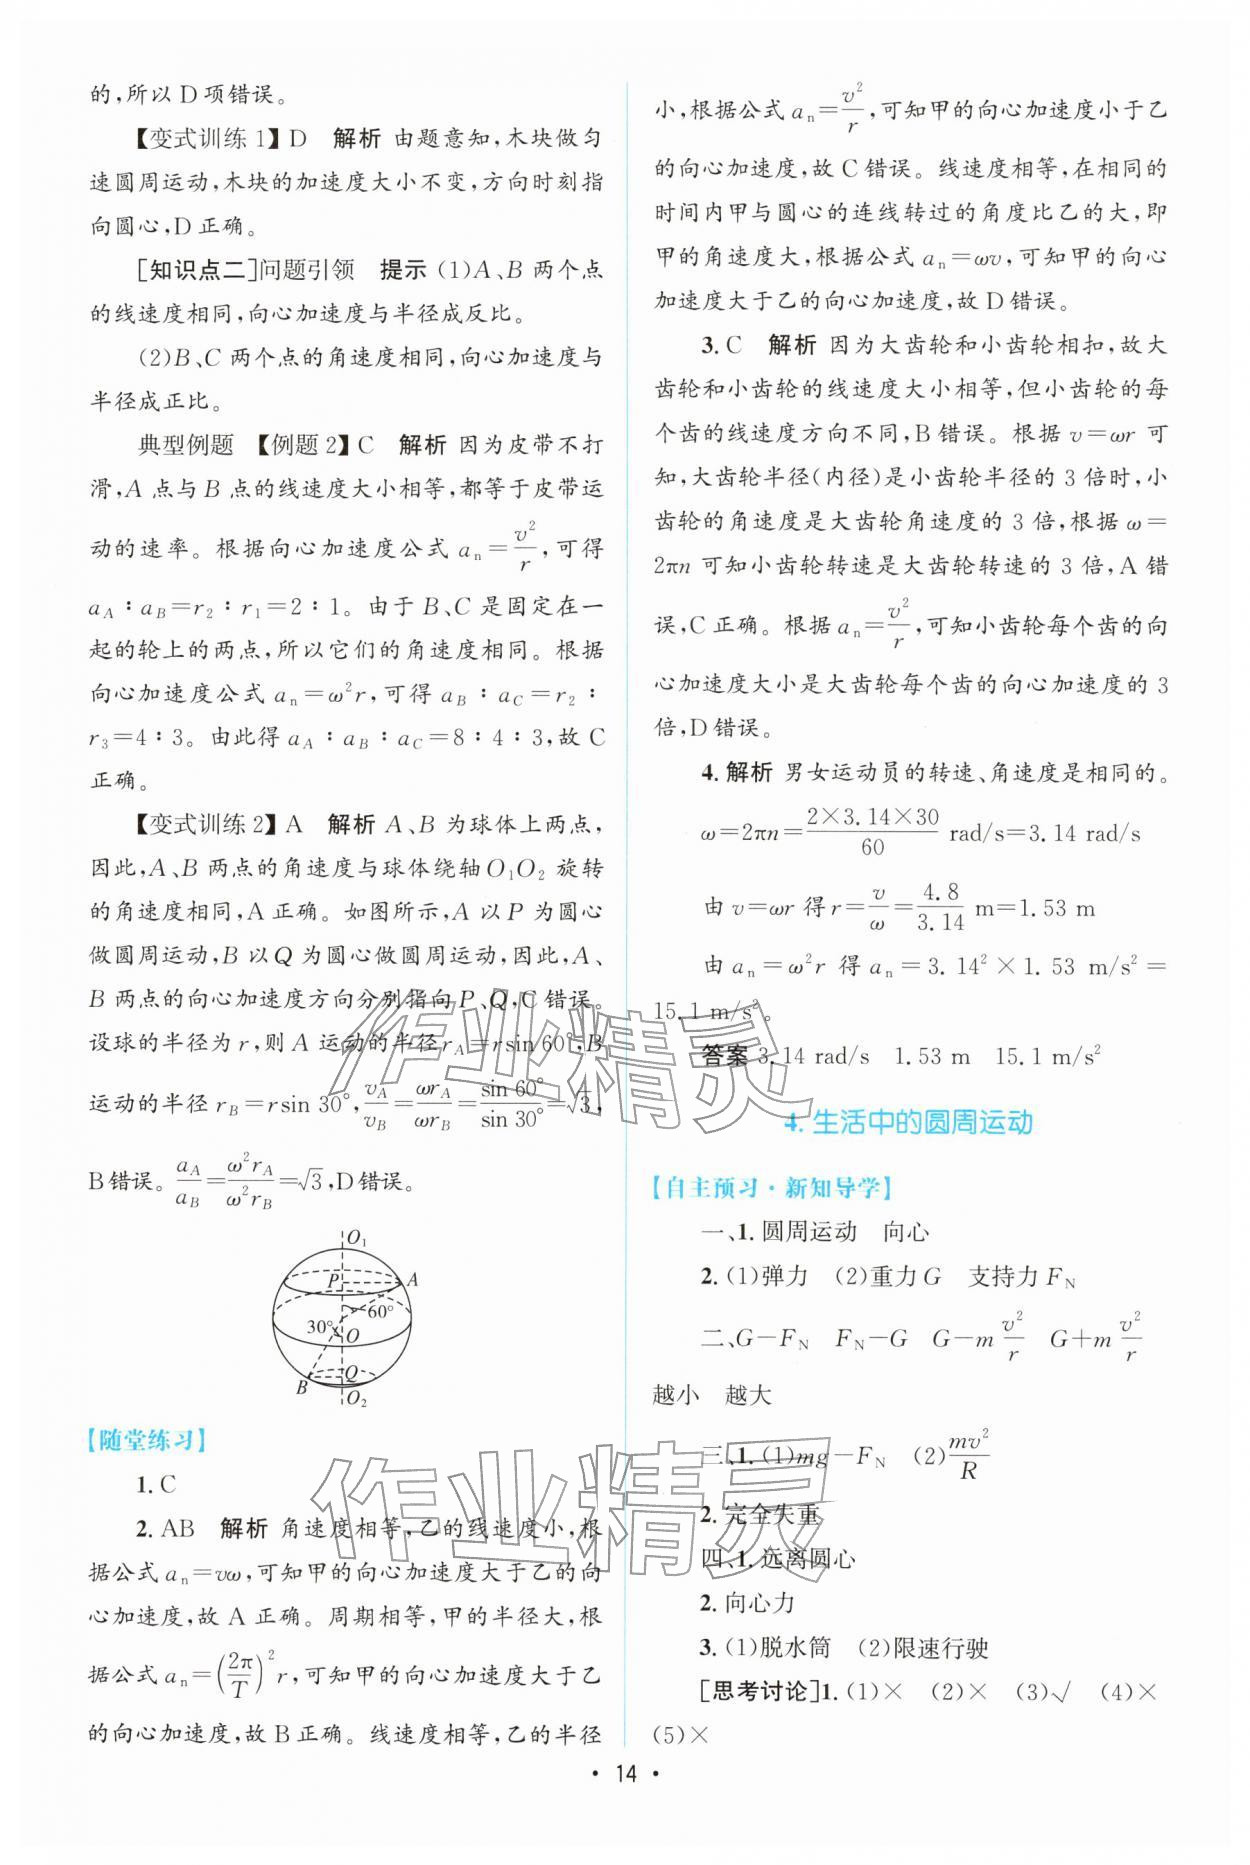 的,所以 D 项错误。
【变式训练1】D 解析 由题意知,木块做匀
速圆周运动,木块的加速度大小不变,方向时刻指
向圆心,D 正确。
[知识点二]问题引领 提示 (1)A、B 两个点
的线速度相同,向心加速度与半径成反比。
(2)B、C 两个点的角速度相同,向心加速度与
半径成正比。
典型例题 【例题2】C 解析 因为皮带不打
滑,A 点与 B 点的线速度大小相等,都等于皮带运
动的速率。根据向心加速度公式 aₙ=v²/r,可得
a_A∶a_B=r₂∶r₁=2∶1。由于 B、C 是固定在一
起的轮上的两点,所以它们的角速度相同。根据
向心加速度公式 aₙ=ω²r,可得 a_B∶a_C=r₂∶
r₃=4∶3。由此得 a_A∶a_B∶a_C=8∶4∶3,故 C
正确。
【变式训练2】A 解析 A、B 为球体上两点,
因此,A、B 两点的角速度与球体绕轴O₁O₂ 旋转
的角速度相同,A 正确。如图所示,A 以 P 为圆心
做圆周运动,B 以 Q 为圆心做圆周运动,因此,A、
B 两点的向心加速度方向分别指向 P、Q,C 错误。
设球的半径为 r,则 A 运动的半径 r_A=rsin 60°,B
运动的半径 r_B=rsin 30°,v_A/v_B=ωr_A/ωr_B=sin 60°/sin 30°=√3,
B 错误。a_A/a_B=ω²r_A/ω²r_B=√3,D 错误。
O₁
P A
60°
30° O
B Q
O₂
【随堂练习】
1. C
2. AB 解析 角速度相等,乙的线速度小,根
据公式 aₙ=vω,可知甲的向心加速度大于乙的向
心加速度,故 A 正确。周期相等,甲的半径大,根
据公式 aₙ=(2π/T)²r,可知甲的向心加速度大于乙
的向心加速度,故 B 正确。线速度相等,乙的半径
小,根据公式 aₙ=v²/r,可知甲的向心加速度小于乙
的向心加速度,故 C 错误。线速度相等,在相同的
时间内甲与圆心的连线转过的角度比乙的大,即
甲的角速度大,根据公式 aₙ=ωv,可知甲的向心
加速度大于乙的向心加速度,故 D 错误。
3. C 解析 因为大齿轮和小齿轮相扣,故大
齿轮和小齿轮的线速度大小相等,但小齿轮的每
个齿的线速度方向不同,B 错误。根据 v=ωr 可
知,大齿轮半径(内径)是小齿轮半径的 3 倍时,小
齿轮的角速度是大齿轮角速度的 3 倍,根据 ω=
2πn 可知小齿轮转速是大齿轮转速的 3 倍,A 错
误,C 正确。根据 aₙ=v²/r,可知小齿轮每个齿的向
心加速度大小是大齿轮每个齿的向心加速度的 3
倍,D 错误。
4. 解析 男女运动员的转速、角速度是相同的。
ω=2πn=2×3.14×30/60 rad/s=3.14 rad/s
由 v=ωr 得 r=v/ω=4.8/3.14 m=1.53 m
由 aₙ=ω²r 得 aₙ=3.14²×1.53 m/s²=
15.1 m/s²。
答案 3.14 rad/s 1.53 m 15.1 m/s²
4. 生活中的圆周运动
【自主预习·新知导学】
一、1. 圆周运动 向心
2. (1)弹力 (2)重力 G 支持力 F_N
二、G−F_N F_N−G G−m v²/r G+m v²/r
越小 越大
三、1. (1)mg−F_N (2)mv²/R
2. 完全失重
四、1. 远离圆心
2. 向心力
3. (1)脱水筒 (2)限速行驶
[思考讨论]1. (1)× (2)× (3)√ (4)×
(5)×
· 14 ·
作业精灵
作业精灵